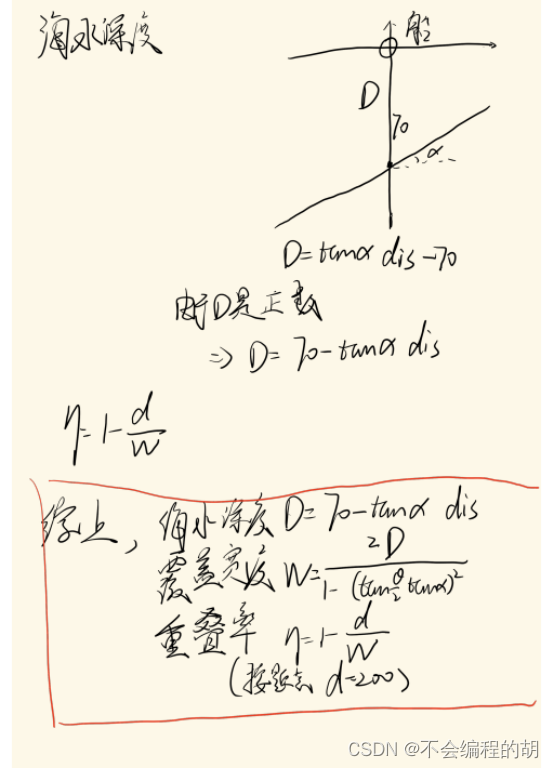 海水深度
船
D
70
α
D=tanα dis-70
由于D是正数
=> D= 70-tanα dis
η=1-d/W
综上，海水深度 D=70-tanα dis
覆盖宽度 W=2D/(1-(tanθ/2 tanα)²)
重叠率 η=1-d/W
(按题意 d=200)
CSDN @不会编程的胡